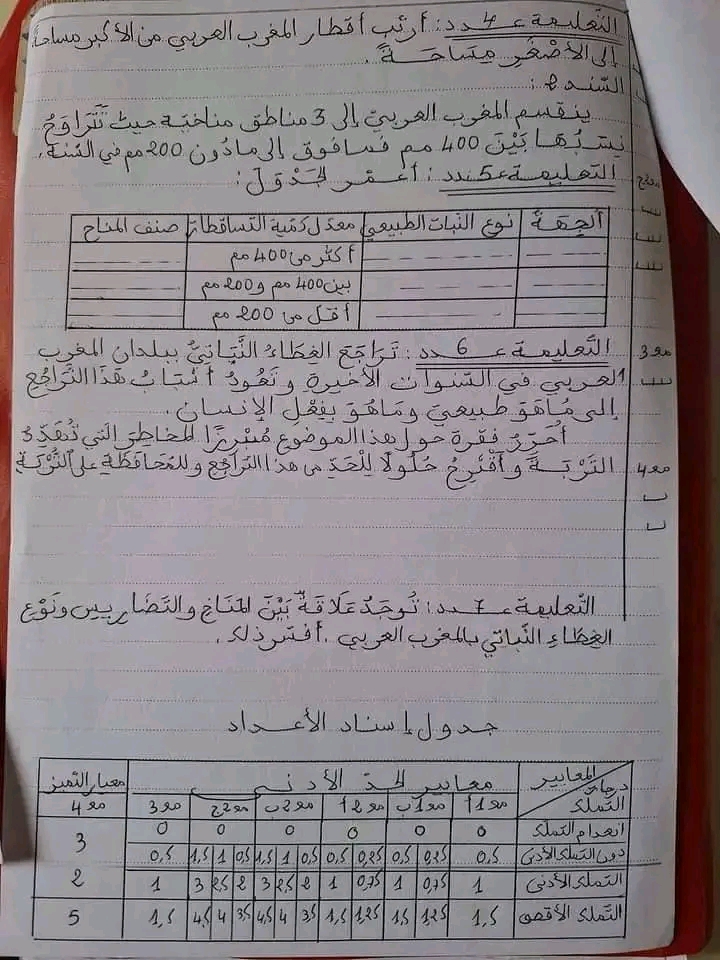 التّعليمة عـ4ـدد: أرتّب أقطار المغرب العربي من الأكبر مساحة
إلى الأصْغَرِ مِسَاحَةً.
السّند 2:
ينقسم المغرب العربيّ إلى 3 مناطق مناخيّة حيث تَتَرَاوَحُ
نِسَبُهَا بَيْنَ 400 مم فمافوق إلى مادُون 200 مم في السّنة.
التعليمة عـ5ـدد: أعمّر الجَدْوَلَ:
الجِهَةُ نوع النّبات الطّبيعي معدّل كميّة التّساقطات صنف المناخ
أكثر من 400 مم
بين 400 مم و 200 مم
أقلّ من 200 مم
مع2ج
مع3
مع4
التّعليمة عـ6ـدد: تَرَاجَعَ الغِطَاءُ النَّبَاتِيُّ ببلدان المغرب
العربي في السّنوات الأخيرة وتَعُودُ أسْبَابُ هَذَا التَّرَاجُعِ
إلى مَاهُوَ طبيعيّ ومَاهُوَ بِفِعْلِ الإنسان.
أُحَرِّرُ فقرة حول هذا الموضوع مُبْرِزًا المَخَاطِرَ التي تُهَدِّدُ
التّرْبَةَ وأَقْتَرِحُ حُلُولًا لِلْحَدِّ من هذا التراجع وللمُحَافَظَةِ على التُّرْبَةِ
التّعليمة عـ7ـدد: تُوجَدُ عَلَاقَةٌ بَيْنَ المَنَاخِ والتّضَاريس ونَوْعِ
الغِطَاءِ النَّبَاتي بالمغرب العربي. أفسّر ذلك.
جدول إسناد الأعداد
المعايير معايير الحدّ الأدنى معيار التميّز
درجات التملّك مع1أ مع1ب مع2أ مع2ب مع2ج مع3 مع4
انعدام التملّك 0 0 0 0 0 0
دون التملّك الأدنى 0,5 0,25 0,5 0,25 0,5 0,5 1 1,5 0,5 1 1,5 0,5 3
التملّك الأدنى 1 0,75 1 0,75 1 2 2,5 3 2 2,5 3 1 2
التملّك الأقصى 1,5 1,25 1,5 1,25 1,5 3,5 4 4,5 3,5 4 4,5 1,5 5